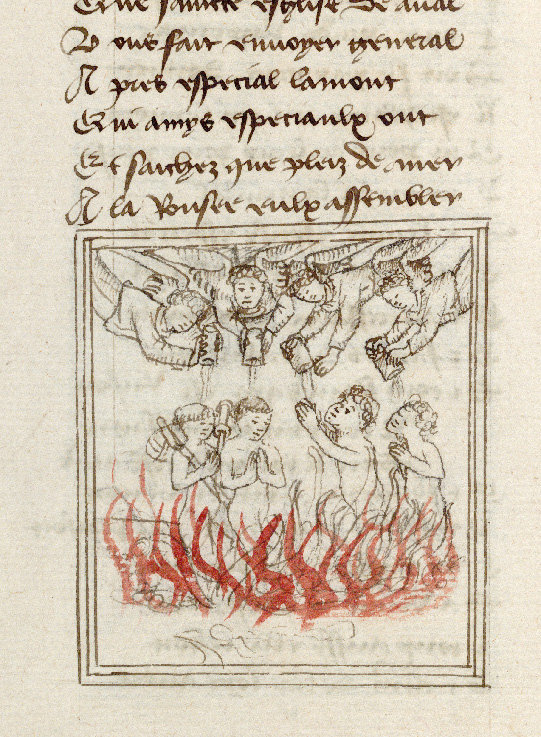 Que saincte esglise de aual
Vous fait enuoyer general
Apres especial lamont
Qui amys especiaulx ont
Et saichez que plez de mer
A la Rousee eulx assembler